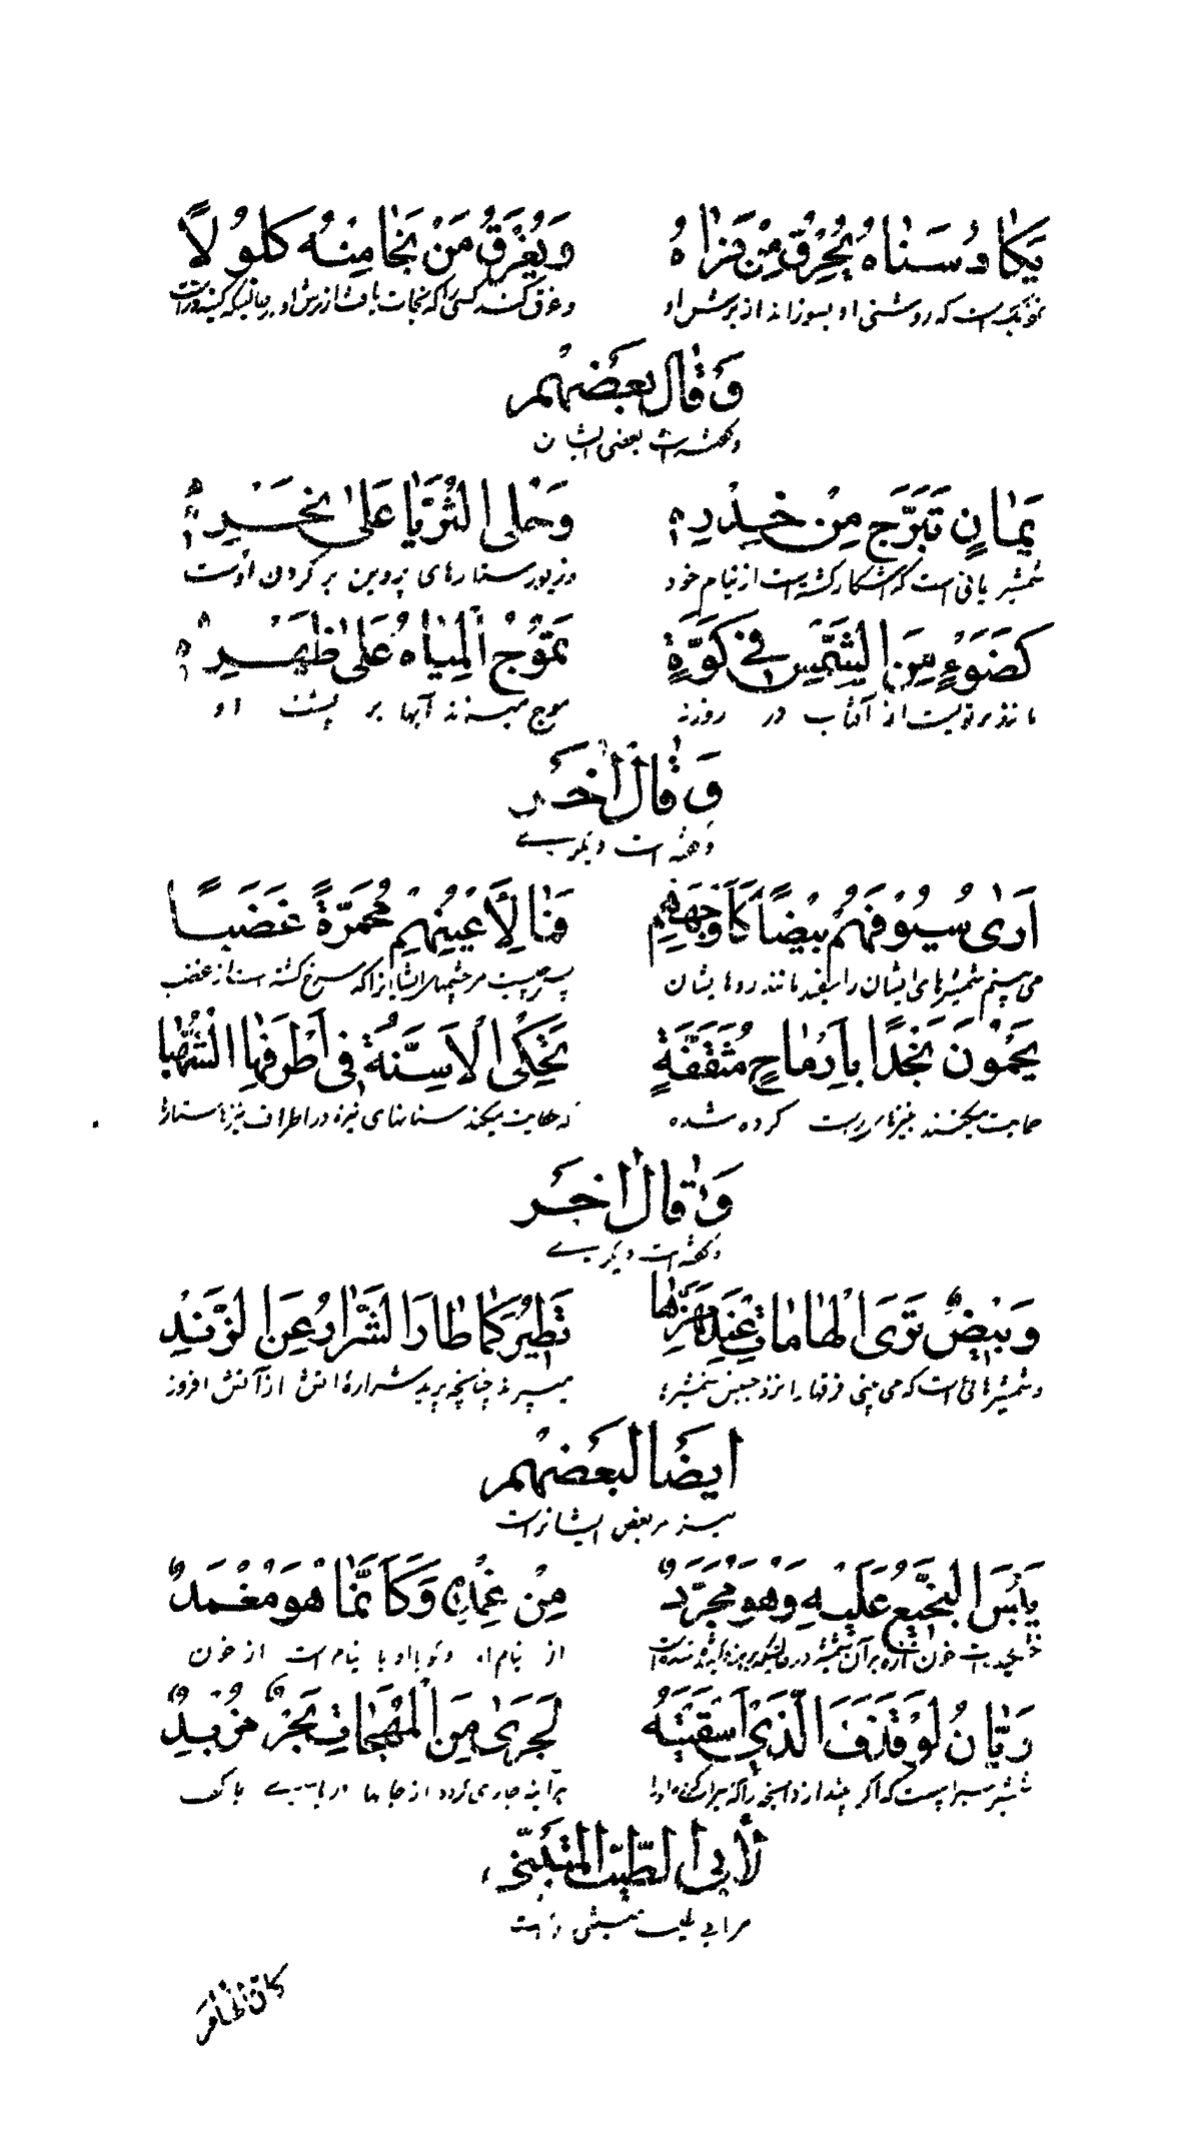 يَكَادُ سَنَاهُ يُحْرِقُ مَنْ يَرَاهُ وَيُغْرَقُ مَنْ نَجَا مِنْهُ كَلُولًا
نزدیکست که روشنی او بسوزاند از برش او و غرق کند کسی را که نجات یافت از برش او در حالیکه کند است
وَقَالَ بَعْضُهُمْ
و گفته است بعضی ایشان
يَمَانٍ تَبَرَّجَ مِنْ خِدْرِهِ وَحُلِى الثُّرَيَّا عَلَى نَحْرِهِ
شمشیر یمانی است که آشکار گشته است از نیام خود و زیور ستارهای پروین بر گردن اوست
كَضَوْءٍ مِنَ الشَّمْسِ فِي كَوَّةٍ تَمَوُّجُ الْمِيَاهُ عَلَى ظَهْرِهِ
مانند پرتویست از آفتاب در روزنه موج میزند آبها بر پشت او
وَقَالَ اٰخَرُ
و گفته است دیگرے
اَرٰى سُيُوْفَهُمْ بِيْضًا كَاَوْجُهِهِمْ فَمَا لِأَعْيُنِهِمْ مُحْمَرَّةً غَضَبًا
می بینم شمشیرهای ایشان را سفید مانند روهایشان پس چیست مر چشمهای ایشانرا که سرخ گشته است از غضب
يَحْمُوْنَ نَجْدًا بِاَرْمَاحٍ مُثَقَّفَةٍ تَحْكِى الْاَسِنَّةُ فِى اَطْرَافِهَا الشُّهُبَا
حمایت میکنند بنیزهای راست کرده شده که حکایت میکند سنانهای نیزه در اطراف نیزها ستارها
وَقَالَ اٰخَرُ
و گفته است دیگرے
وَبِيْضٌ تَرَى الْهَامَاتِ عِنْدَ هَزِّهَا تَطِيْرُ كَمَا طَارَ الشَّرَارُ عَنِ الزَّنْدِ
و شمشیرهائی است که می بینی فرقها را نزد جنبش شمشیرها میپرند چنانچه پرید شرارهٔ آتش از آتش افروز
اَيْضًا لِبَعْضِهِمْ
نیز مر بعض ایشانراست
يَبِسَ النَّجِيْعُ عَلَيْهِ وَهُوَ مُجَرَّدٌ مِنْ غِمْدِهِ وَكَاَنَّمَا هُوَ مُغْمَدٌ
خشکیده است خون تازه بر آن شمشیر در حالیکه برهنه کرده شده است از نیام او و گویا او با نیام است از خون
رَيَّانُ لَوْ قَذَفَ الَّذِيْ اَسْقَيْتَهُ لَجَرٰى مِنَ الْمُهَجَاتِ بَحْرٌ مُزْبِدٌ
شمشیر سیرابست که اگر بیندازد آنچه را که سیراب کردی او را هرآینه جاری گردد از جانها دریائے با کف
لِأَبِى الطَّيِّبِ الْمُتَنَبِّى
مر ابی طیب متنبی راست